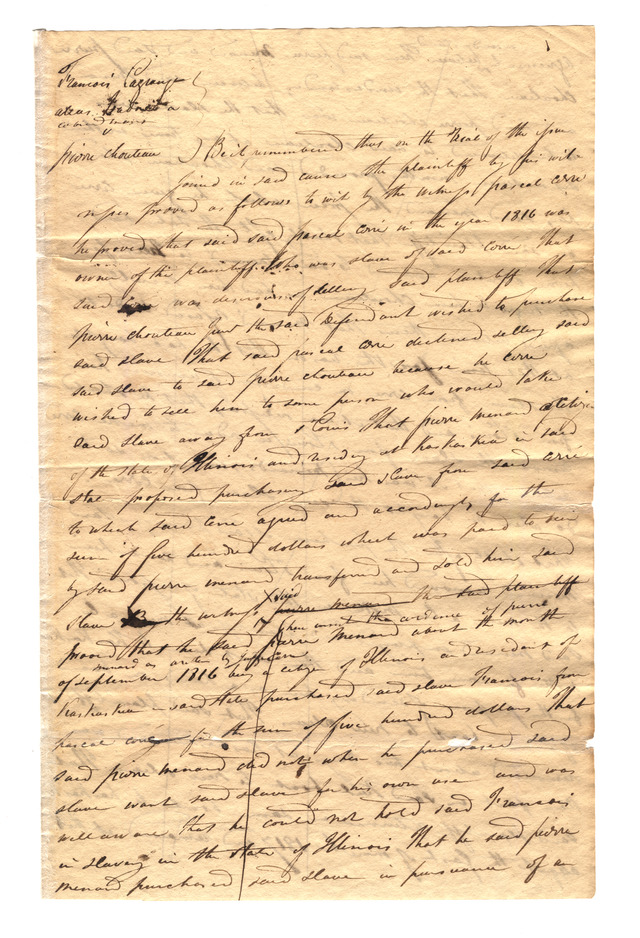 Francois Lagrange
alias Ladoucea
Pierre Chouteau ) Be it remembered that on the trial of the issue
joined in said cause the plaintiff by his wit-
nesses proved as follows to wit by the witness pascal cerre
he proved that said said pascal cerré in the year 1816 was
owner of the plaintiff who was slave of said cerre That
said was desirous of selling said plaintiff That
pierre chouteau Junr the said Defendant wished to purchase
said slave That said pascal cerre declined selling said
said slave to said pierre chouteau because he cerré
wished to sell him to some person who would take
said slave away from St Louis That pierre menard a citizen
of the state of Illinois and residing at Kaskaskia in said
state proposed purchasing said slave from said cerré
to which said cerre agreed and accordingly for the
sum of five hundred dollars which was paid to him
by said pierre menard transferred and sold him said
slave the witness said pierre menard the said plaintiff
then came the evidence of pierre
proved that he said pierre Menard about the month
menard as written
of september 1816 being a citizen of Illinois and resident of
Kaskaskia in said state purchased said slave Francois from
pascal cerré for the sum of five hundred dollars That
said pierre menard did not when he purchased said
slave want said slave for his own use and was
well aware that he could not hold said Francois
in slavery in the state of Illinois That he said pierre
menard purchased said slave in pursuance of a